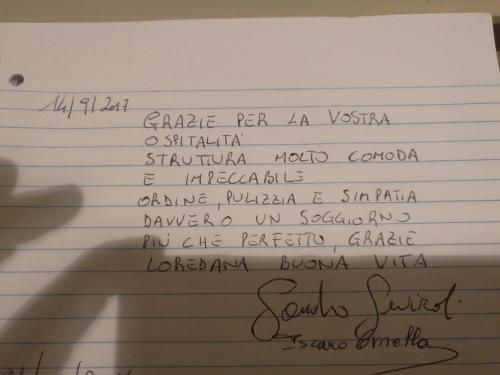 14/9/2017
GRAZIE PER LA VOSTRA
OSPITALITÀ
STRUTTURA MOLTO COMODA
E IMPECCABILE
ORDINE, PULIZZIA E SIMPATIA
DAVVERO UN SOGGIORNO
PIÙ CHE PERFETTO, GRAZIE
LOREDANA BUONA VITA
Sandro
Iscaro Ornella